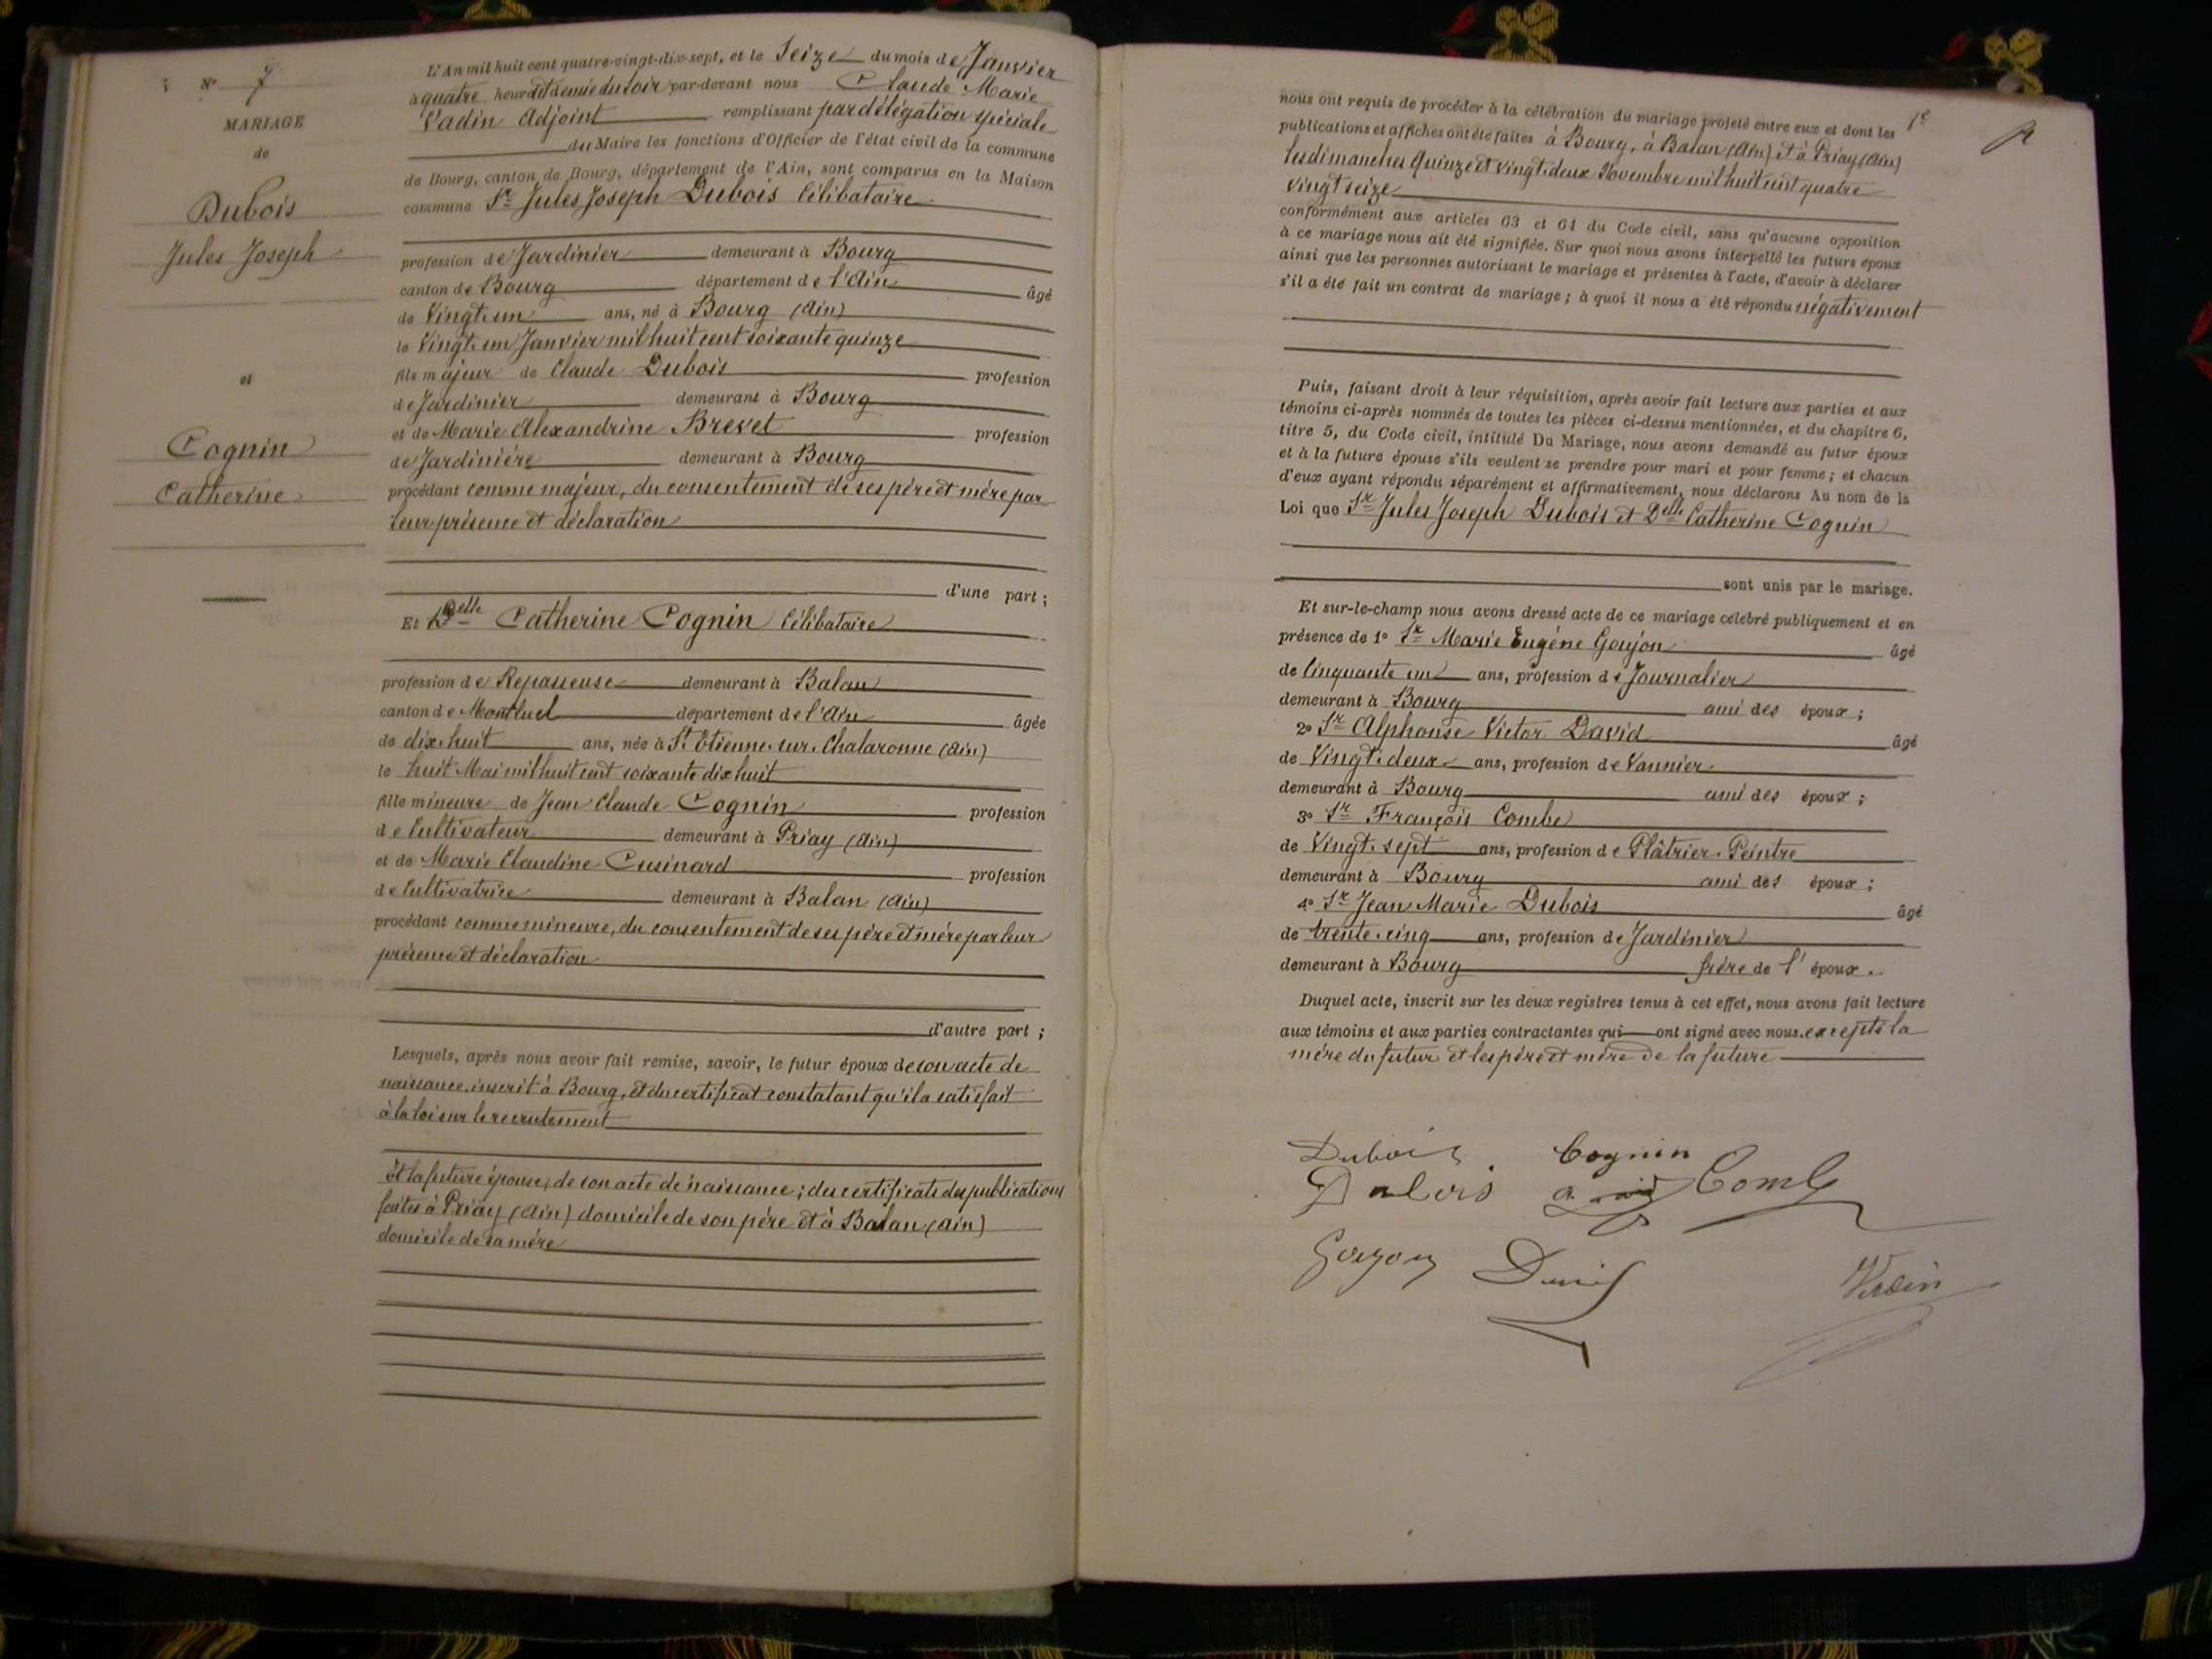 N° 7
MARIAGE
de
Dubois
Jules Joseph
et
Cognin
Catherine
L'An mil huit cent quatre-vingt-dix-sept, et le Seize du mois de Janvier
à quatre heures et demie du soir par-devant nous Claude Marie
Vadin Adjoint remplissant par délégation spéciale
du Maire les fonctions d'Officier de l'état civil de la commune
de Bourg, canton de Bourg, département de l'Ain, sont comparus en la Maison
commune Sr Jules Joseph Dubois Célibataire
profession de Jardinier demeurant à Bourg
canton de Bourg département de l'Ain âgé
de Vingt-un ans, né à Bourg (Ain)
le Vingt-un Janvier mil huit cent soixante quinze
fils majeur de Claude Dubois profession
de Jardinier demeurant à Bourg
et de Marie Alexandrine Brevet profession
de Jardinière demeurant à Bourg
procédant comme majeur, du consentement de ses père et mère par
leur présence et déclaration
d'une part ;
Et Delle Catherine Cognin Célibataire
profession de Repasseuse demeurant à Balan
canton de Montluel département de l'Ain âgée
de dix-huit ans, née à St Etienne-sur-Chalaronne (Ain)
le huit Mai mil huit cent soixante dix huit
fille mineure de Jean Claude Cognin profession
de Cultivateur demeurant à Priay (Ain)
et de Marie Claudine Cusinard profession
de Cultivatrice demeurant à Balan (Ain)
procédant comme mineure, du consentement de ses père et mère par leur
présence et déclaration
d'autre part ;
Lesquels, après nous avoir fait remise, savoir, le futur époux de son acte de
naissance inscrit à Bourg, et du certificat constatant qu'il a satisfait
à la loi sur le recrutement
Et la future épouse, de son acte de naissance ; des certificats des publications
faites à Priay (Ain) domicile de son père et à Balan (Ain)
domicile de sa mère
nous ont requis de procéder à la célébration du mariage projeté entre eux et dont les
publications et affiches ont été faites à Bourg, à Balan (Ain) et à Priay (Ain)
les dimanches Quinze et vingt-deux Novembre mil huit cent quatre
vingt seize
conformément aux articles 63 et 64 du Code civil, sans qu'aucune opposition
à ce mariage nous ait été signifiée. Sur quoi nous avons interpellé les futurs époux
ainsi que les personnes autorisant le mariage et présentes à l'acte, d'avoir à déclarer
s'il a été fait un contrat de mariage ; à quoi il nous a été répondu négativement
Puis, faisant droit à leur réquisition, après avoir fait lecture aux parties et aux
témoins ci-après nommés de toutes les pièces ci-dessus mentionnées, et du chapitre 6,
titre 5, du Code civil, intitulé Du Mariage, nous avons demandé au futur époux
et à la future épouse s'ils veulent se prendre pour mari et pour femme ; et chacun
d'eux ayant répondu séparément et affirmativement, nous déclarons Au nom de la
Loi que Sr Jules Joseph Dubois et Delle Catherine Cognin
sont unis par le mariage.
Et sur-le-champ nous avons dressé acte de ce mariage célébré publiquement et en
présence de 1° Sr Marie Eugène Goujon âgé
de Cinquante un ans, profession de Journalier
demeurant à Bourg ami des époux ;
2° Sr Alphonse Victor David âgé
de Vingt-deux ans, profession de Vannier
demeurant à Bourg ami des époux ;
3° Sr François Combe
de Vingt-sept ans, profession de Plâtrier-Peintre
demeurant à Bourg ami des époux ;
4° Sr Jean Marie Dubois âgé
de trente-cinq ans, profession de Jardinier
demeurant à Bourg frère de l'époux.
Duquel acte, inscrit sur les deux registres tenus à cet effet, nous avons fait lecture
aux témoins et aux parties contractantes qui ont signé avec nous excepté la
mère du futur et les père et mère de la future
Dubois Cognin
Dubois Combe
Goujon
Vadin